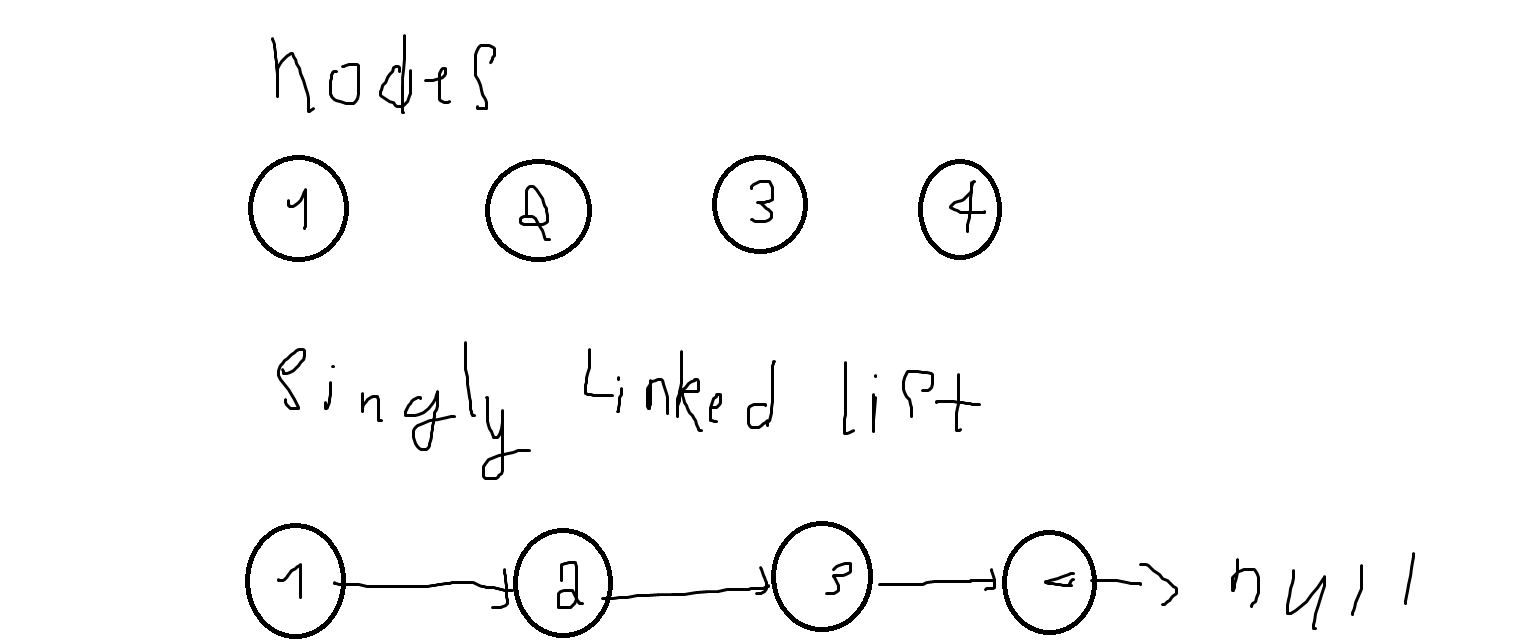 nodes
1 2 3 4
Singly Linked list
1 2 3 4 null